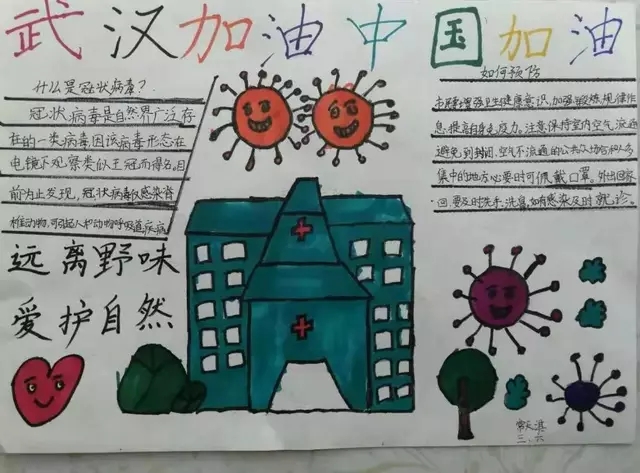 武汉加油中国加油
什么是冠状病毒?
冠状病毒是自然界广泛存
在的一类病毒因该病毒形态在
电镜下观察类似王冠而得名.目
前为止发现,冠状病毒仅感染脊
椎动物,可引起人和动物呼吸道疾病
远离野味
爱护自然
如何预防
增强卫生健康意识,加强锻炼规律作
息,提高自身免疫力.注意保持室内空气流通
避免到封闭.空气不流通的公共场合和人多
集中的地方心要时可佩戴口罩.外出回家
回要及时洗手.洗鼻,如有感染及时就诊。
三、六